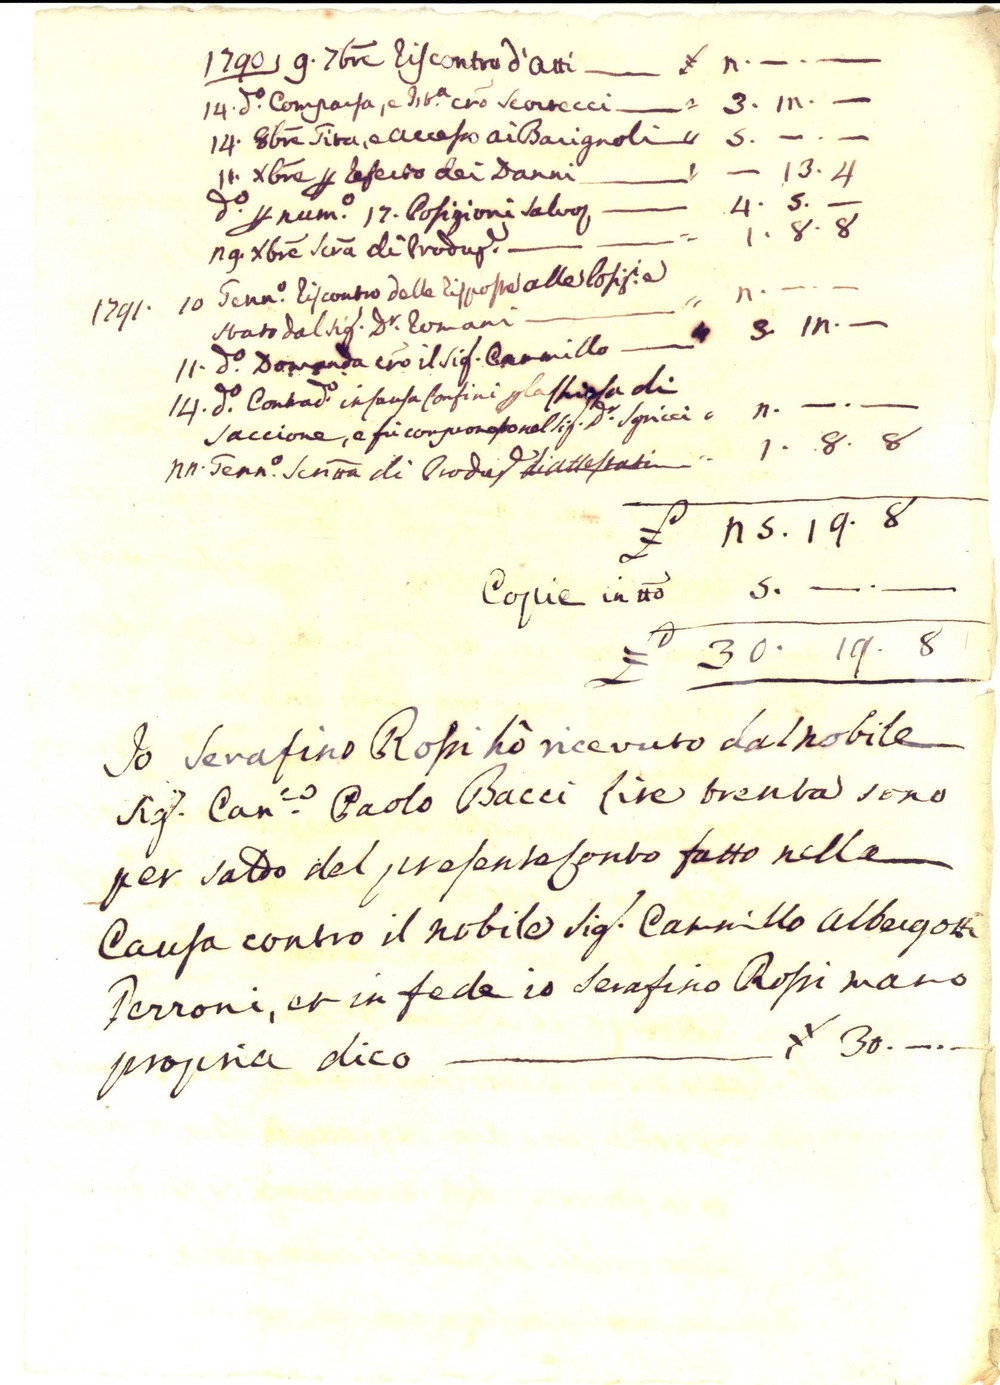 1790, 9. 7bre Riscontro d'Atti —— £ 2. — . —
14. d.o Comparsa, e Rib.a cró Scortecci —— " 3. 12. —
14. 8bre Gita, e accesso ai Bacignoli " 5. — . —
11. Xbre p Referto dei Danni —— " — 13. 4
d.o p num.o 17. Posizioni salvo —— 4. 5. —
29. Xbre Scrã di Produz.e —— " 1. 8. 8
1791. 10 Genn.o Riscontro delle Risposte alle Posiz.e
dal Sig. Dr. Romani —— " 2. — . —
11. d.o Domanda cró il Sig. Cammillo —— " 3. 12. —
14. d.o Contrad.o in Causa Confini di
Saccione, e fù Sig. Dr. Sgricci " 2. — . —
22. Genn.o Scrittã di Produz.e di attestati — " 1. 8. 8
£ 25. 19. 8
Copie in tto 5. — . —
£ 30. 19. 8
Io Serafino Rossi hò ricevuto dal nobile
Sig. Can.co Paolo Bacci lire trenta sono
per saldo del presente conto fatto nella
Causa contro il nobile Sig. Cammillo Albergotti
Perroni, et in fede io Serafino Rossi mano
propria dico —— £ 30. — . —